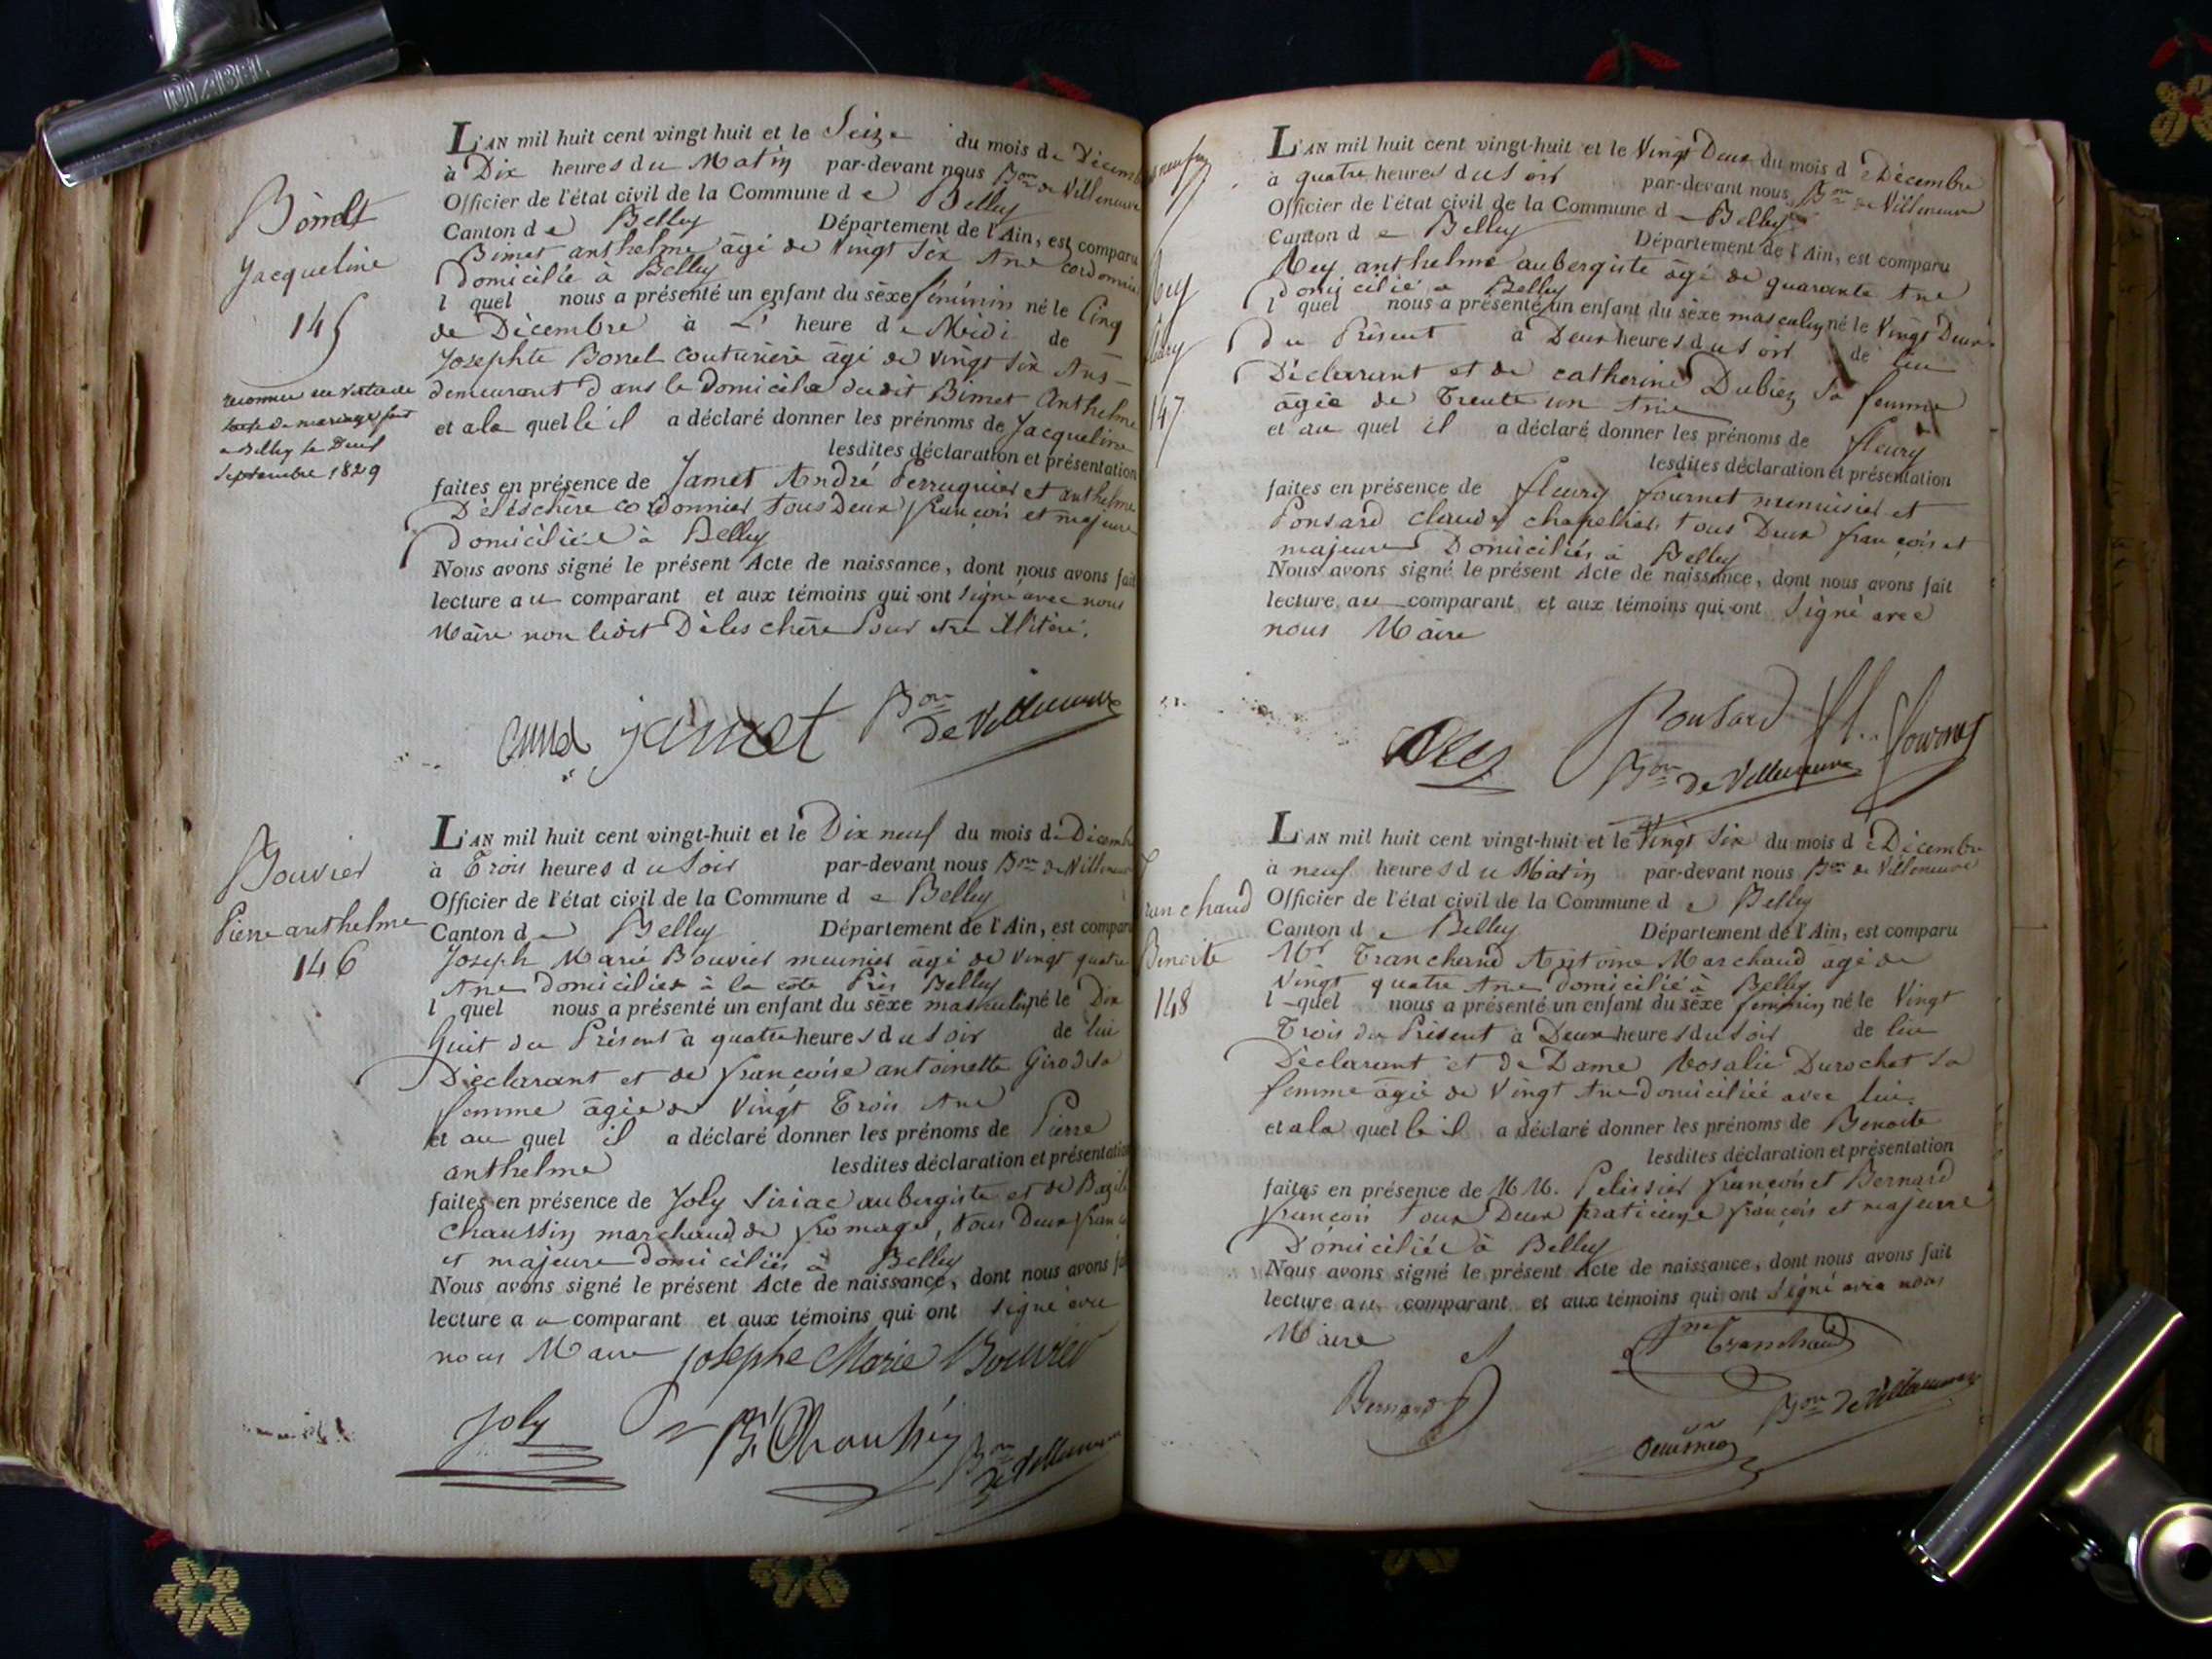 DIABEL
Bonet
Jacqueline
145
reconnue en vertu de
l'acte de mariage fait
a Belley le Deux
Septembre 1829
L'AN mil huit cent vingt-huit et le Seize du mois de Décemb
à Dix heures du Matin par-devant nous Bon de Villeneuve
Officier de l'état civil de la Commune de Belley
Canton de Belley Département de l'Ain, est comparu
Bimet anthelme âgé de Vingt Six Ans cordonnier
Domicilié à Belley
lequel nous a présenté un enfant du sèxe féminin né le Cinq
de Décembre à L' heure de Midi de
Josephte Bonet couturière âgé de Vingt Six Ans
demeurant dans le Domicile dudit Bimet Anthelme
et a la quelle il a déclaré donner les prénoms de Jacqueline
lesdites déclaration et présentation
faites en présence de Jamet André Perruquier et anthelme
Déleschère cordonnier tous Deux françois et majeure
domicilié à Belley
Nous avons signé le présent Acte de naissance, dont nous avons fait
lecture au comparant et aux témoins qui ont Signé avec nous
Maire non ledit Déleschère Pour etre illitéré.
jamet Bon de Villeneuve
Bouvier
Pierre anthelme
146
L'AN mil huit cent vingt-huit et le Dix neuf du mois de Décemb
à Trois heures du Soir par-devant nous Bon de Villeneuve
Officier de l'état civil de la Commune de Belley
Canton de Belley Département de l'Ain, est comparu
Joseph Marie Bouvier meunier âgé de Vingt quatre
Ans domicilier à la côte Près Belley
lequel nous a présenté un enfant du sèxe masculin né le Dix
huit du Présent à quatre heures du Soir de lui
Déclarant et de françoise antoinette Girod sa
femme âgée de Vingt Trois Ans
et au quel il a déclaré donner les prénoms de Pierre
anthelme lesdites déclaration et présentation
faites en présence de Joly Siriac aubergiste et de Bazile
Chaussin marchand de fromage, tous Deux franc
et majeure domiciliés à Belley
Nous avons signé le présent Acte de naissance, dont nous avons fa
lecture au comparant et aux témoins qui ont Signé avec
nous Maire josephe Marie Bouvier
Joly B. Bon de Villeneuve
Rey
fleury
147
L'AN mil huit cent vingt-huit et le Vingt Deux du mois de Décembre
à quatre heures du Soir par-devant nous Bon de Villeneuve
Officier de l'état civil de la Commune de Belley
Canton de Belley Département de l'Ain, est comparu
Rey anthelme aubergiste âgé de quarante Ans
Domicilié à Belley
lequel nous a présenté un enfant du sèxe masculin né le Vingt Deux
du Présent à Deux heures du Soir de lui
Déclarant et de catherine Dubiez Sa femme
âgée de Trente un Ans
et au quel il a déclaré donner les prénoms de fleury
lesdites déclaration et présentation
faites en présence de fleury fournet menuisier et
Ponsard claude chapellier tous Deux françois et
majeure Domiciliés à Belley
Nous avons signé le présent Acte de naissance, dont nous avons fait
lecture au comparant et aux témoins qui ont Signé avec
nous Maire
Rey Ponsard fl. fournet
Bon de Villeneuve
Tranchand
Benoite
148
L'AN mil huit cent vingt-huit et le Vingt Six du mois de Décembre
à neuf heures du Matin par-devant nous Bon de Villeneuve
Officier de l'état civil de la Commune de Belley
Canton de Belley Département de l'Ain, est comparu
Mr Tranchand Antoine Marchand âgé de
Vingt quatre Ans Domicilié à Belley
lequel nous a présenté un enfant du sèxe feminin né le Vingt
Trois du Présent à Deux heures du Soir de lui
Déclarant et de Dame Rosalie Durochat Sa
femme âgée de Vingt Ans domiciliée avec lui
et a la quelle il a déclaré donner les prénoms de Benoite
lesdites déclaration et présentation
faites en présence de MM. Pelissier françois et Bernard
françois tous Deux praticiens françois et majeure
Domiciliés à Belley
Nous avons signé le présent Acte de naissance, dont nous avons fait
lecture au comparant et aux témoins qui ont Signé avec nous
Maire
Tranchand
Bernard Bon de Villeneuve